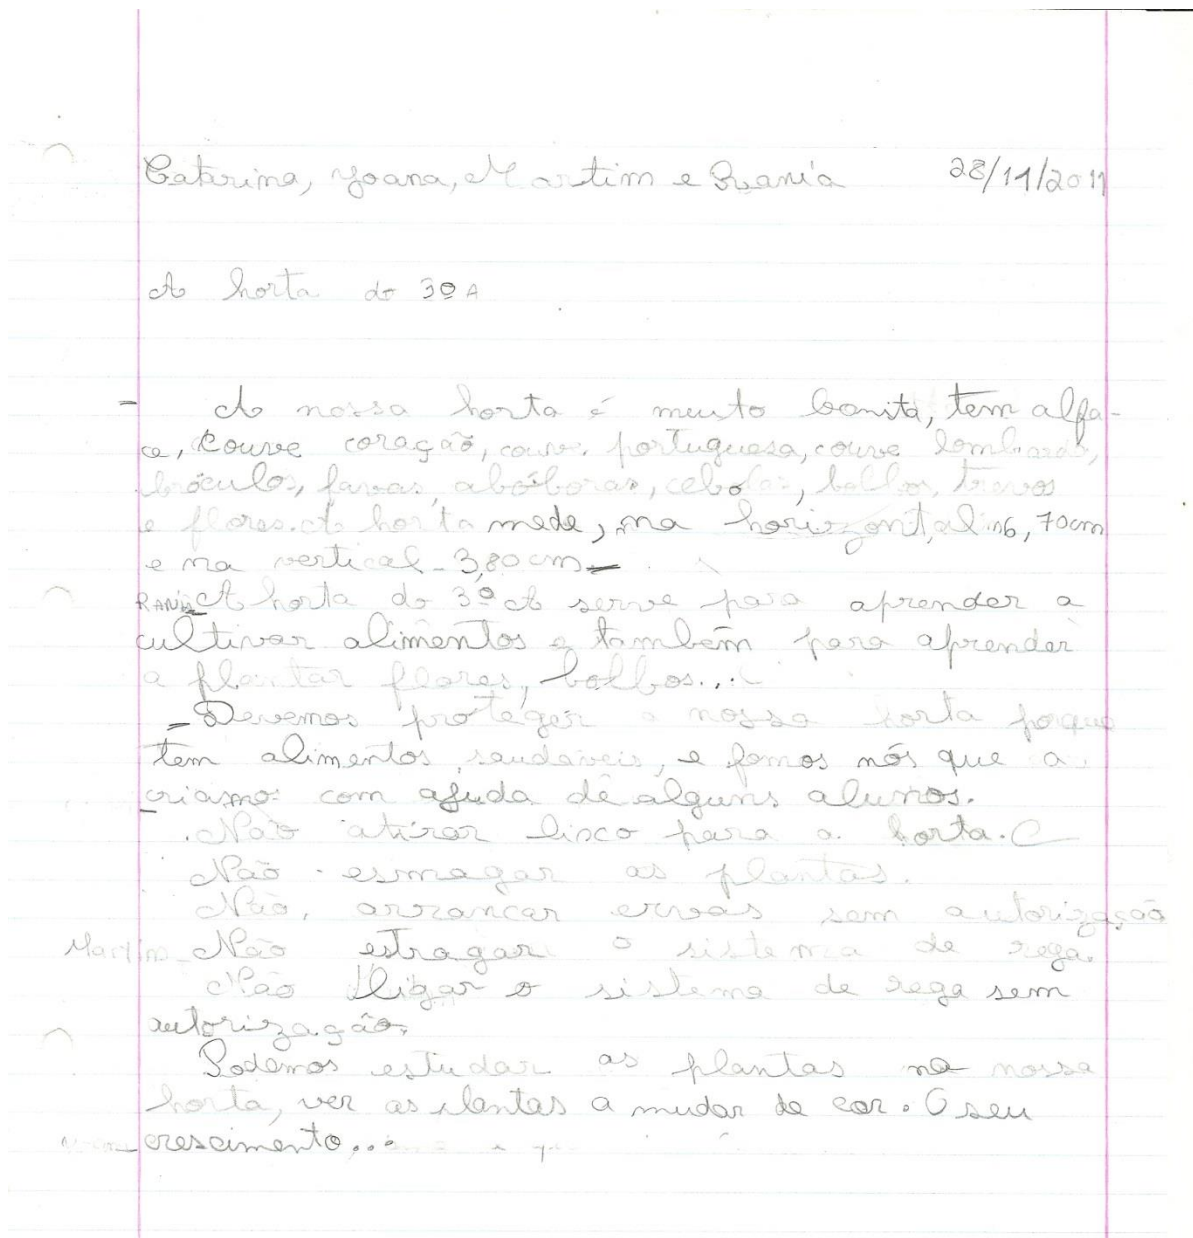 Catarina, Joana, Martim e Rania 28/11/2011
A horta do 3º A
- A nossa horta é muito bonita, tem alfa-
ce, couve coração, couve portuguesa, couve lombarda,
bróculos, favas, abóboras, cebolas, bolbos, trevos
e flores. A horta mede, na horizontal 16,70cm
e na vertical - 3,80cm-
RANIA_A horta do 3º A serve para aprender a
cultivar alimentos e também para aprender
a plantar flores, bolbos...
- Devemos proteger a nossa horta porque
tem alimentos saudáveis, e fomos nós que a
criamos com ajuda de alguns alunos.
- Não atirar lisco para a horta.
Não esmagar as plantas.
Não, arrancar ervas sem autorização
Martim_ Não estragar o sistema de rega.
Não lligar o sistema de rega sem
autorização.
Podemos estudar as plantas na nossa
horta, ver as plantas a mudar de cor. O seu
crescimento...